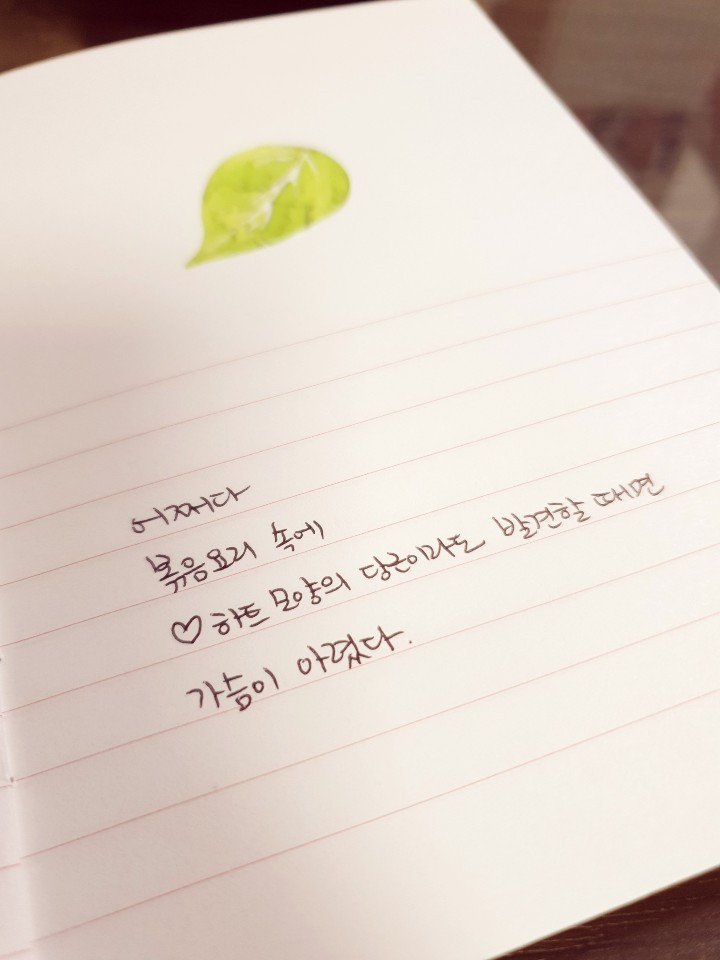 어쩌다
볶음요리 속에
♡하트 모양의 당근이라도 발견할 때면
가슴이 아렸다.